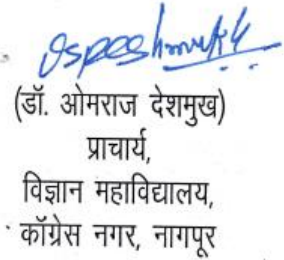 (डॉ. ओमराज देशमुख)
प्राचार्य,
विज्ञान महाविद्यालय,
काँग्रेस नगर, नागपूर